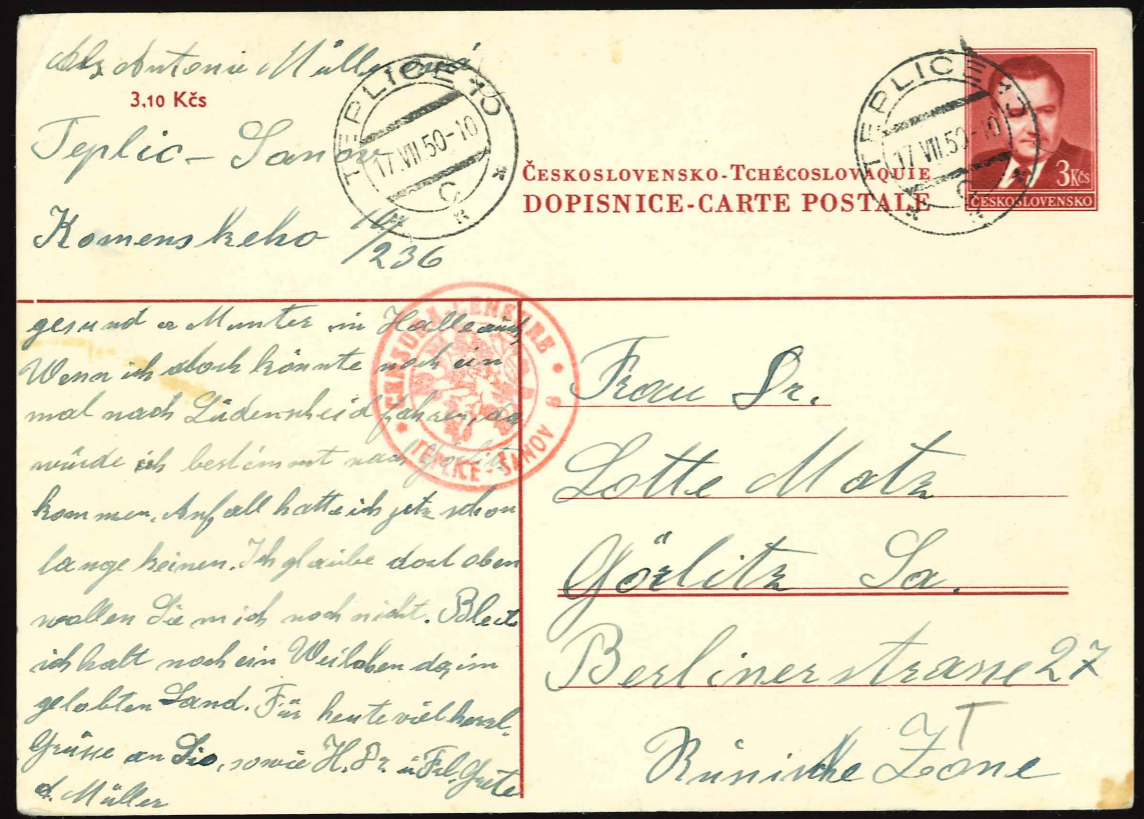 Antonie Müllerová
3,10 Kčs
Teplic - Sanov
Komenskeho
236
TEPLICE
17.VII 50-10
TEPLICE
17 VII 50-10
ČESKOSLOVENSKO-TCHÉCOSLOVAQUIE
DOPISNICE-CARTE POSTALE
3 Kčs
ČESKOSLOVENSKO
TEPLICE - ŠANOV
gesund u Munter in Halle
Wenn ich doch könnte noch ein
mal nach Lüdenscheid fahren,
würde ich bestimmt nach Görlitz
kommen. Anfall hatte ich jetz schon
lange keinen. Ich glaube dort oben
wollen Sie mich noch nicht.
ich halt noch ein Weilchen da, im
gelobten Land. Für heute viel herzl.
Grüsse an Sie, sowie H. Dr. u Frl. Grete
d. Müller
Frau Dr.
Lotte Matz
Görlitz Sa.
Berlinerstrasse 27
Russische Zone
T